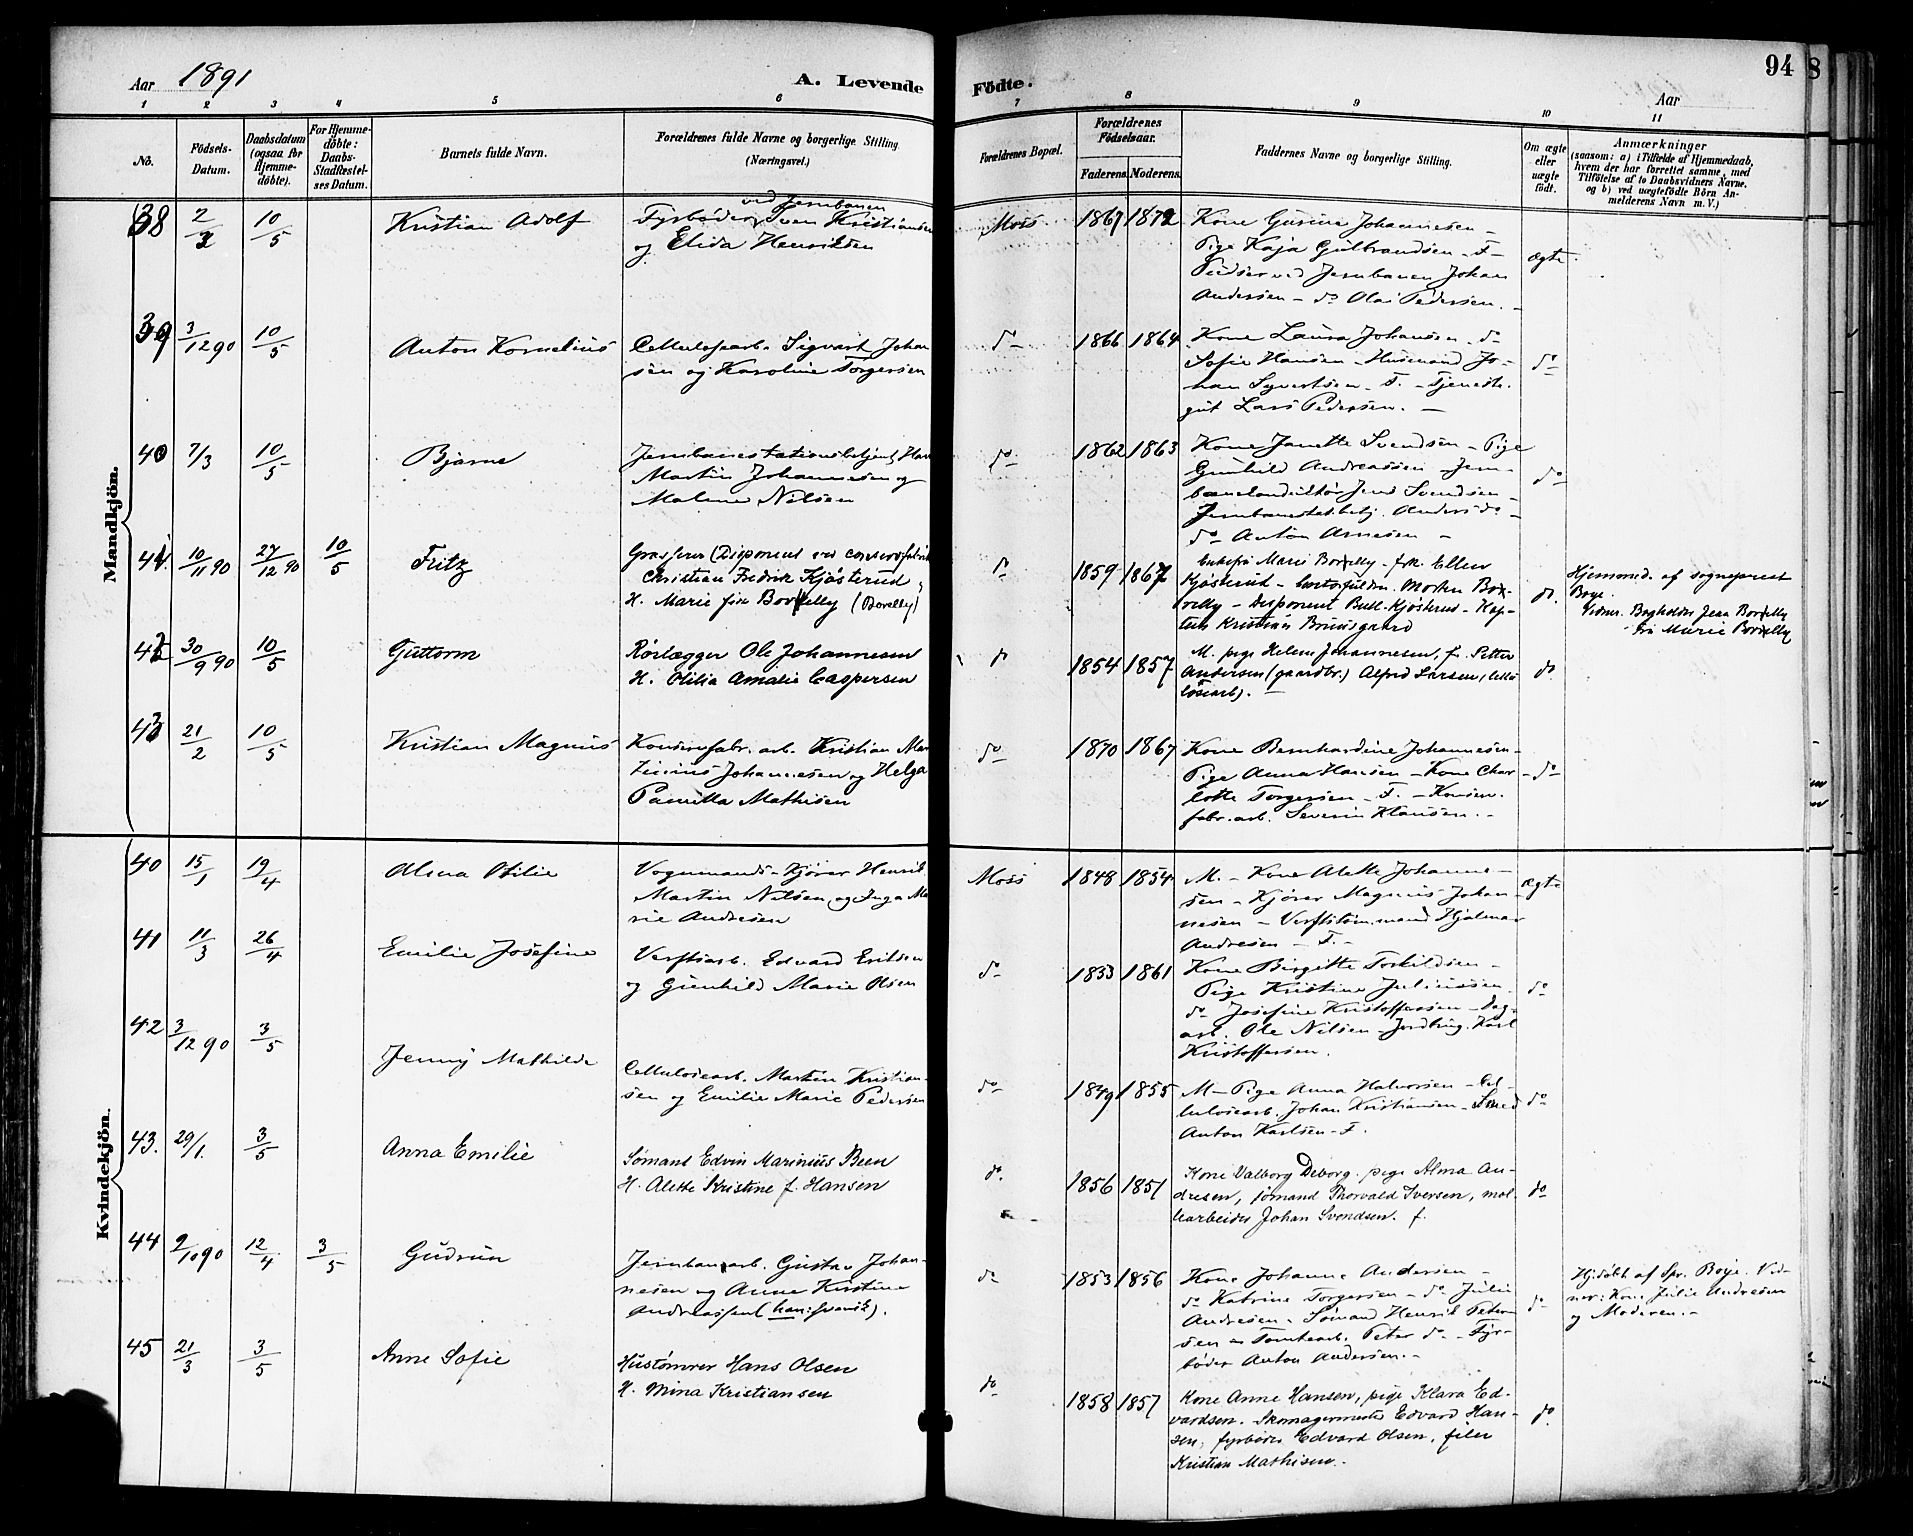 Aar 1891
A. Levende
Födte.
94
8
Aar
1 2 3 4 5 6 7 8 9 10 11
No.
Födsels-
Datum.
Daabsdatum
(ogsaa for
Hjemme-
döbte).
For Hjemme-
döbte:
Daabs-
Stadfæstel-
ses Datum.
Barnets fulde Navn.
Forældrenes fulde Navne og borgerlige Stilling
(Næringsvei.)
Forældrenes Bopæl.
Forældrenes
Födselsaar.
Faderens. Moderens.
Faddernes Navne og borgerlige Stilling.
Om ægte
eller
uægte
födt.
Anmærkninger
(saasom: a) i Tilfælde af Hjemmedaab,
hvem der har forrettet samme, med
Tilföielse af to Daabsvidners Navne.
og b) ved uægtefödte Börn An-
melderens Navn m. V.)
Mandkjön.
38 2/3 10/5 Kristian Adolf
ved Jernbanen
Fyrbøder Sven Kristiansen
og Elida Henriksen
Moss 1867 1872
Kone Gurine Johannesen -
Pige Kaja Gulbrandsen - F -
Pudser ved Jernbanen Johan
Andersen - do Olai Pedersen. -
ægte
39 3/12 90 10/5 Anton Kornelius
Cellulosearb. Sigvart Johan
sen og Karoline Torgersen
do 1866 1864
Kone Laura Johansen - do
Sofie Hansen - Husmand Jo-
han Syvertsen - F. - Tjeneste-
gut Lars Pedersen. -
do
40 7/3 10/5 Bjarne
Jernbanestationsbetjent Hans
Martin Johannesen og
Malene Nilsen
do 1862 1863
Kone Janette Svendsen - Pige
Gunhild Andreassen - Jern-
banekonduktør Jens Svendsen -
Jernbanestat.betj. Anders do -
do Anton Arnesen -
do
41. 10/11 90 27/12 90 10/5 Fritz
Grosserer (Disponent ved conservefabrik
Christian Fredrik Kjøsterud
H. Marie født Borrelly (Borelly)
do 1859 1867
Enkefru Marie Borrelly - frk. Ellen
Kjøsterud - Morten Bor-
relly - Disponent Bull-Kjøsterud - Kap-
tein Kristian Bruusgaard
do.
Hjemmed. af sogneprest
Boye.
Vidner. Bogholder Jens Borrelly
fru Marie Borrelly
42 30/9 90 10/5 Guttorm
Rørlægger Ole Johannesen
H. Otilia Amalie Caspersen
do 1854 1857
M. pige Helene Johannesen, f. Petter
Andersen (gaardbr.) Alfred Larsen, (cellu
losearb). -
do.
43 21/2 10/5 Kristian Magnus
Konservefabr. arb. Kristian Mar
tinius Johannesen og Helga
Pamilla Mathisen
do 1870 1867
Kone Bernhardine Johannesen -
Pige Anna Hansen - Kone Char
lotte Torgersen - F. - Konserv.
fabr. arb. Severin Klausen. -
do
Kvindekjön.
40 15/1 19/4 Alma Otilie
Vognmands-Kjører Henrik
Martin Nilsen og Inga Ma
rie Andresen
Moss 1848 1854
M. - Kone Alette Johanne-
sen - Kjører Magnus Johan-
nesen - Verftstøm.mand Hjalmar
Andresen - F. -
ægte
41 11/3 26/4 Emilie Josefine
Verftsarb. Edvard Eriksen
og Gunhild Marie Olsen
do 1833 1861
Kone Birgitte Torkildsen -
Pige Kristine Juliussen
do Josefine Kristoffersen - Dag-
arb. Ole Nilsen - Jordbrug. Karl
Kristoffersen.
do
42 3/12 90 3/5 Jenny Mathilde
Cellulosearb. Martin Kristian-
sen og Emilie Marie Pedersen
do 1849 1855
M - Pige Anna Halvorsen - Cel-
lulosearb. Johan Kristiansen - Smed
Anton Karlsen - F.
do
43. 29/1. 3/5 Anna Emilie
Sømand Edvin Marinius Been
H. Alette Kristine f. Hansen
do. 1856 1851
Kone Valborg Deborg. pige Alma An-
dresen, sømand Thorvald Iversen, møl-
learbeider Johan Svendsen. f.
do
44 9/10 90 12/4 3/5 Gudrun
Jernbanearb. Gustav Johan-
nesen og Anne Kirstine
Andreassen (han: svensk).
do 1853 1856
Kone Johanne Andersen -
do Katrine Torgersen - do Julie
Andresen - Sømand Henrik Peter
sen - Tomtearb. Peter do - Fyr-
bøder Anton Andersen. -
do
Hj.døbt af Spr. Boye. Vid-
ner: Kone Julie Andresen
og Moderen. -
45 21/3 3/5 Anne Sofie
Hustømrer Hans Olsen
H. Mina Kristiansen
do 1858 1857
Kone Anne Hansen, pige Klara Ed-
vardsen. Skomagermester Edvard Han-
sen, fyrbøder Edvard Olsen, filer
Kristian Mathisen. -
do.